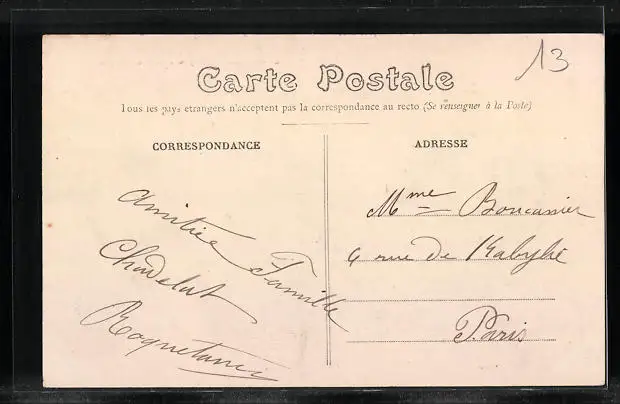 13
Carte Postale
Tous les pays etrangers n'acceptent pas la correspondance au recto (Se renseigner à la Poste)
CORRESPONDANCE
Amitiée Famille
Chadelat
ADRESSE
Mme Boucanier
rue de Kabylie
Paris